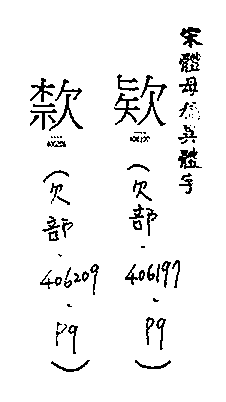 宋體母稿異體字
欵
(欠部.406197.P9)
(欠部.406209.P9)